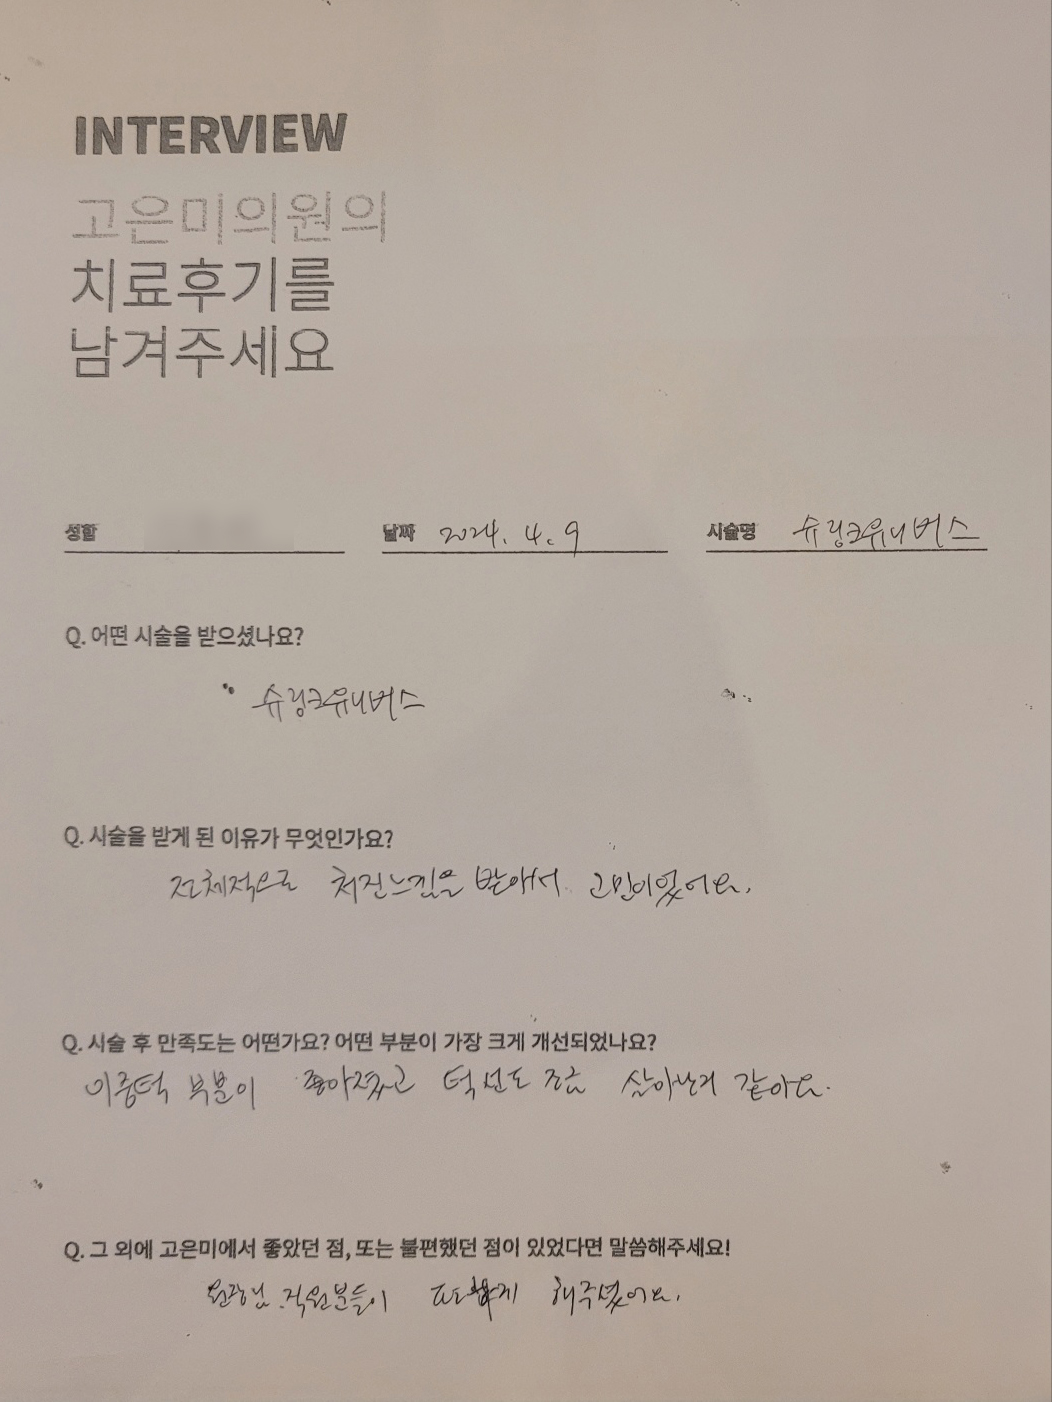 INTERVIEW
고은미의원의
치료후기를
남겨주세요
성함 날짜 2024. 4. 9 시술명 슈링크유니버스
Q. 어떤 시술을 받으셨나요?
슈링크유니버스
Q. 시술을 받게 된 이유가 무엇인가요?
전체적으로 처진느낌을 받아서 고민이었어요.
Q. 시술 후 만족도는 어떤가요? 어떤 부분이 가장 크게 개선되었나요?
이중턱 부분이 좋아졌고 턱선도 조금 살아난거 같아요.
Q. 그 외에 고은미에서 좋았던 점, 또는 불편했던 점이 있었다면 말씀해주세요!
원장님 직원분들이 해주셨어요.